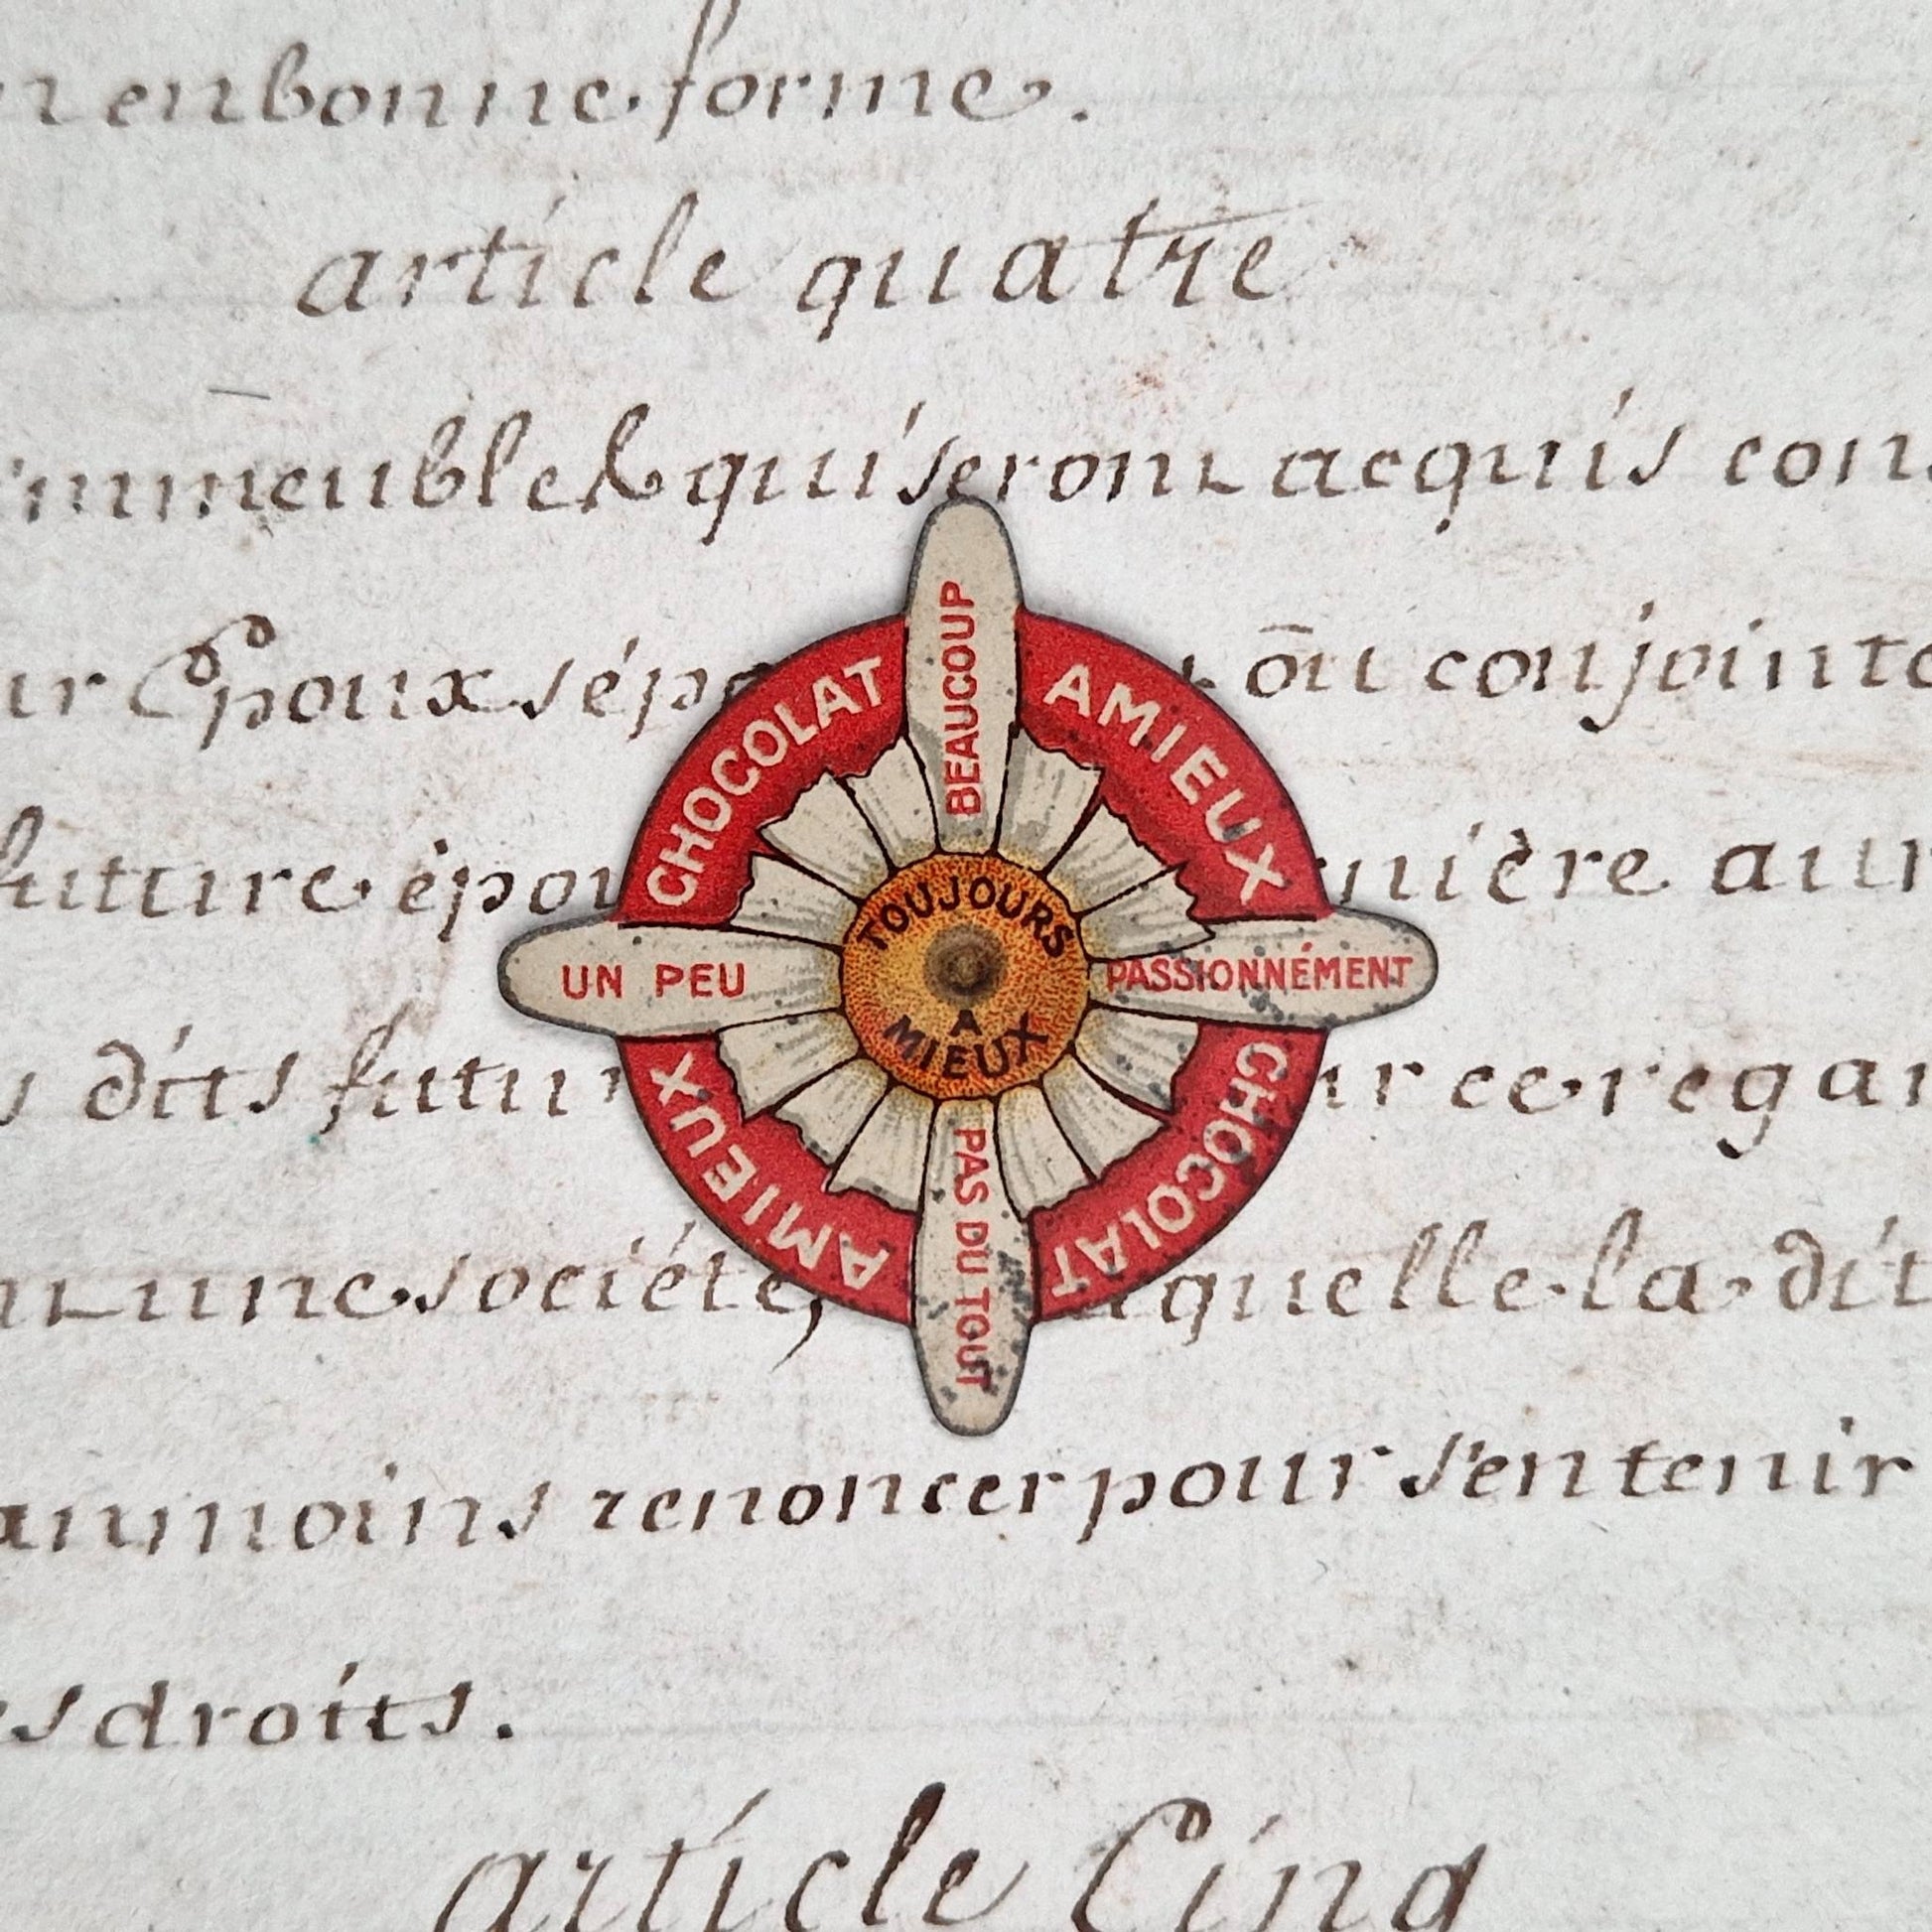 en bonne forme.
article quatre
immeubles qui seront acquis con
ur Epoux sépa ou conjointe
future épou rnière aur
s dits futur ur ce regar
une société, quelle la dit
anmoins renoncer pour s'en tenir
es droits.
article Cinq
CHOCOLAT AMIEUX
BEAUCOUP
UN PEU
TOUJOURS
A
MIEUX
PASSIONNÉMENT
PAS DU TOUT
CHOCOLAT AMIEUX